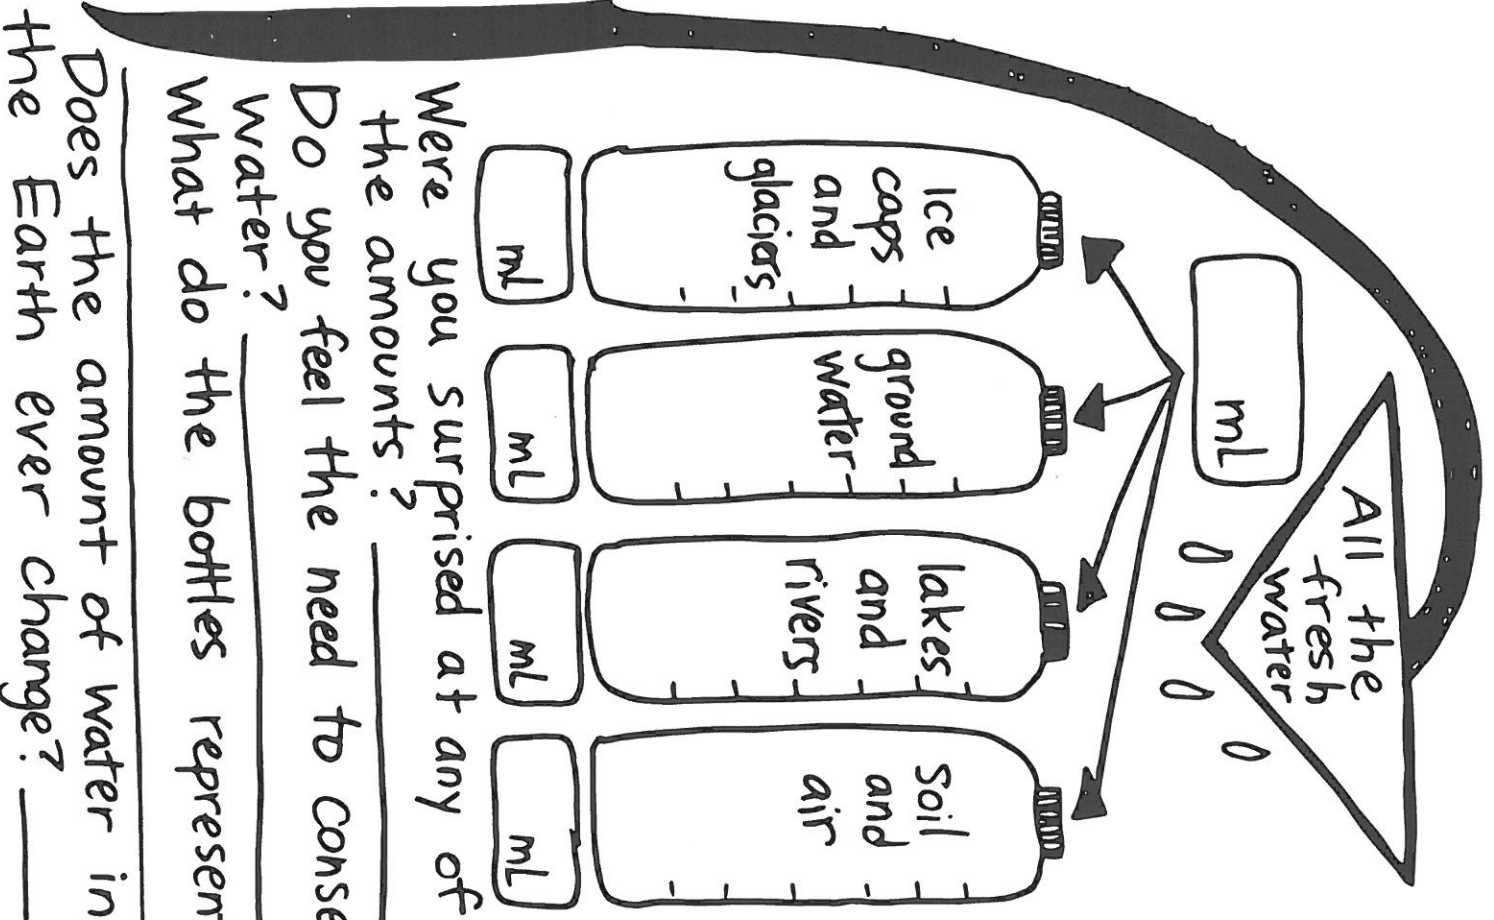 All the
fresh
water
mL
Ice
caps
and
glaciers
ground
water
lakes
and
rivers
Soil
and
air
mL
mL
mL
mL
Were you surprised at any of
the amounts?
Do you feel the need to conse
water?
What do the bottles represen
Does the amount of water in
the Earth ever change?